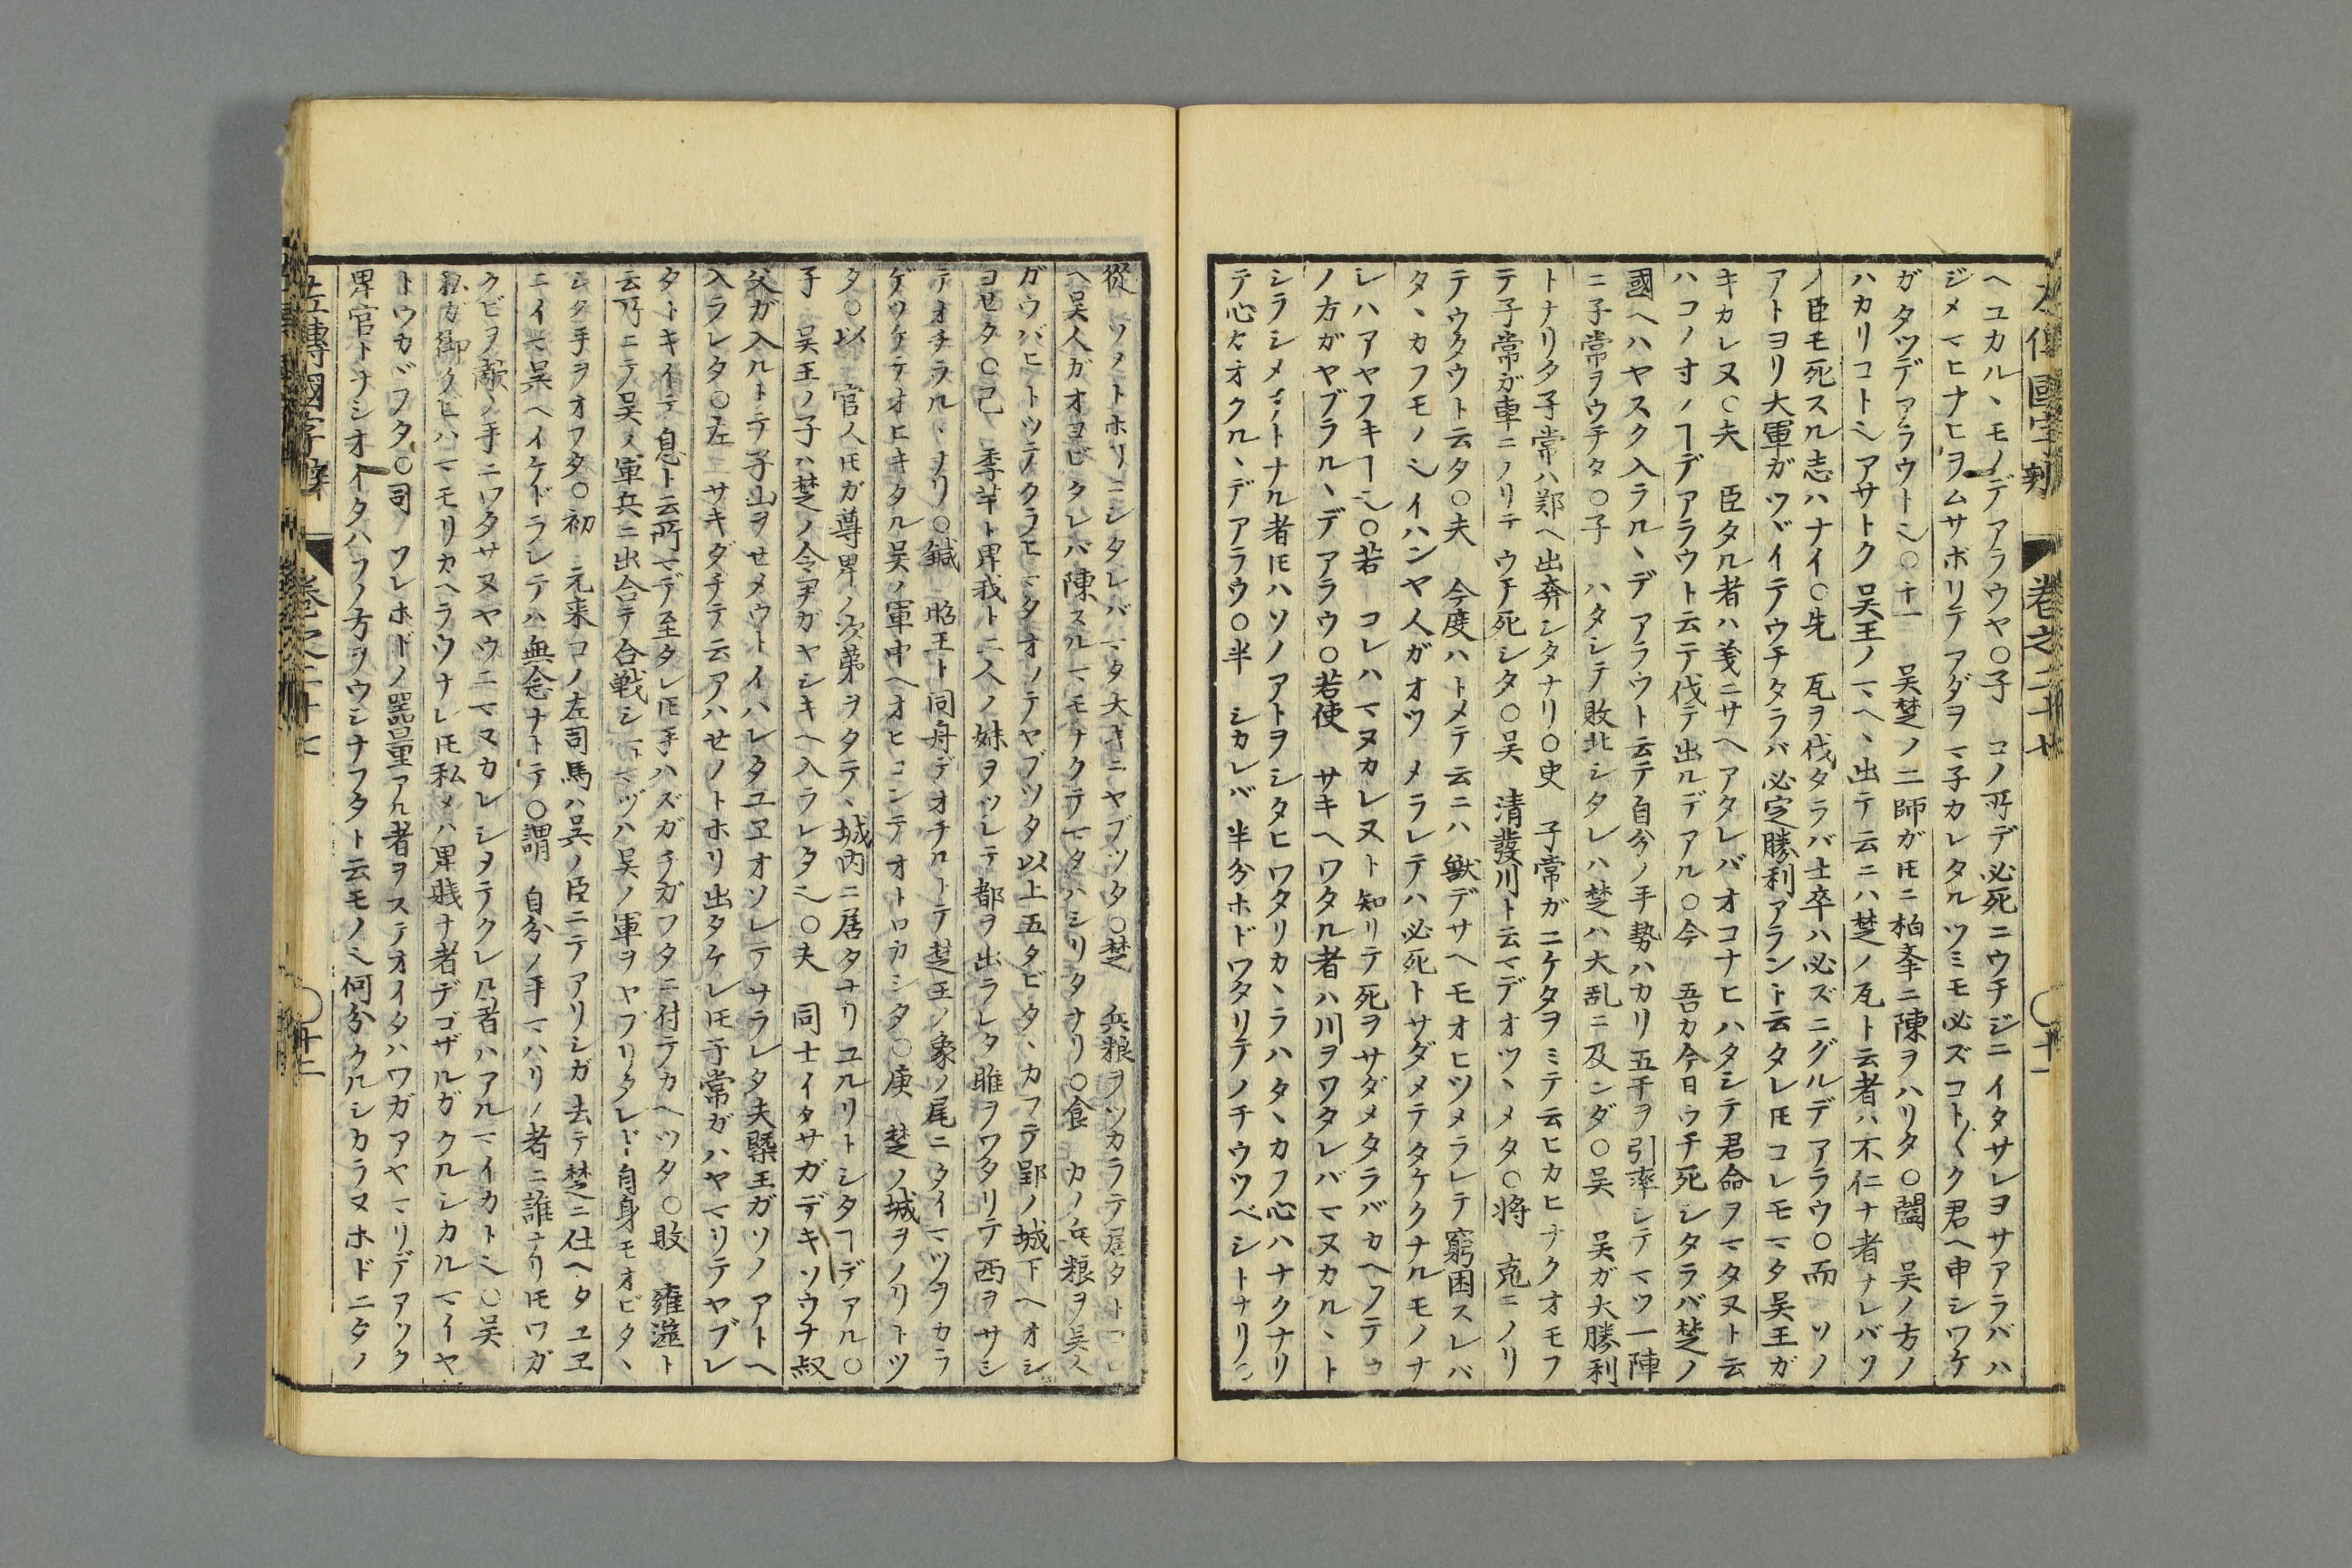 左傳國字辨 卷之二十七 ○十一
ヘユカルヽモノデアラウヤ○子 コノ所デ必死ニウチジニイタサレヨサアラバハ
ジメマヒナヒヲムサボリテアダヲマ子カレタルツミモ必ズコト〴〵ク君ヘ申シワケ
ガタツデアラウトヘ○十一 吴楚ノ二師ガ𪜈ニ柏挙ニ陳ヲハリタ○闔 吴ノ方ノ
ハカリコトヘアサトク吴王ノマヘヽ出テ云ニハ楚ノ瓦ト云者ハ不仁ナ者ナレバソ
ノ臣モ死スル志ハナイ○先 瓦ヲ伐タラバ士卒ハ必ズニグルデアラウ○而 ソノ
アトヨリ大軍ガツヾイテウチタラバ必定勝利アラント云タレ𪜈コレモマタ吴王ガ
キカレヌ○夫 臣タル者ハ義ニサヘアタレバオコナヒハタシテ君命ヲマタヌト云
ハコノ寸ノヿデアラウト云テ伐テ出ルデアル○今 吾カ今日ウチ死シタラバ楚ノ
國ヘハヤスク入ラルヽデアラウト云テ自分ノ手勢ハカリ五千ヲ引率シテマツ一陣
ニ子常ヲウチタ○子 ハタシテ敗北シタレハ楚ハ大乱ニ及ンダ○吴 吴ガ大勝利
トナリタ子常ハ鄭ヘ出奔シタナリ○史 子常ガニケタヲミテ云ヒカヒナクオモフ
テ子常ガ車ニノリテウチ死シタ○吴 清發川ト云マデオツヽメタ○将 克ニノリ
テウタウト云タ○夫 今度ハトメテ云ニハ獣デサヘモオヒツメラレテ窮困スレバ
タヽカフモノヘイハンヤ人ガオツメラレテハ必死トサダメテタケクナルモノナ
レハアヤフキヿヘ○若 コレハマヌカレヌト知リテ死ヲサダメタラバカヘツテコ
ノ方ガヤブラルヽデアラウ○若使 サキヘワタル者ハ川ヲワタレバマヌカルヽト
シラシメメノトナル者𪜈ハソノアトヲシタヒワタリカヽラハタヽカフ心ハナクナリ
テ心ガオクルヽデアラウ○半 シカレバ半分ホドワタリテノチウツベシトナリヘ
從 ソノトホリニシタレバマタ大キニヤブツタ○楚 兵粮ヲツカラテ居タトコレ
ヘ吴人ガオヨビタレバ陳スルマモナクテマタハシリタナリ○食 カノ兵粮ヲ吴人
ガウバヒトツテクラヒマタオツテヤブツタ以上五タビタヽカフテ郢ノ城下ヘオシ
ヨセタ○己 季芉ト畀我ト二人ノ妹ヲツレテ都ヲ出ラレタ雎ヲワタリテ西ヲサシ
テオチラルヽナリ○鍼 昭王ト同舟デオチルトテ楚王ノ象ノ尾ニタイマツヲカラ
ゲツケテオヒキタル吴ノ軍中ヘオヒコンテオトロカシタ○庚 楚ノ城ヲノリトツ
タ○以 官人𪜈ガ尊卑ノ次第ヲタテヽ城内ニ居タナリユルリトシタヿデアル○
子 吴王ノ子ハ楚ノ令尹ガヤシキヘ入ラレタヘ○夫 同士イタサガデキソウナ叔
父ガ入ルトテ子山ヲせメウトイハレタユヱオソレテサラレタ夫槩王ガソノアトヘ
入ラレタ○左 サキダチテ云アハせノトホリ出タケレ𪜈子常ガハヤマリテヤブレ
タトキイテ息ト云所マデ至タレ𪜈手ハズガチガフタニ付テカヘツタ○敗 雍澨ト
云所ニテ吴ノ軍兵ニ出合テ合戦シテマヅハ吴ノ軍ヲヤブリタレドー自身モオビタヽ
シク手ヲオフタ○初 元来コノ左司馬ハ吴ノ臣ニテアリシガ去テ楚ニ仕ヘタユヱ
ニイマ吴ヘイケドラレテハ無念ナトテ○謂 自分ノ手マハリノ者ニ誰ナリ𪜈ワガ
クビヲ敵ノ手ニワタサヌヤウニマヌカレシヲテクレル者ハアルマイカトヘ○吴
私ガ御クビハマモリカヘラウナレ𪜈私メハ卑賎ナ者デゴザルガクルシカルマイヤ
トウカヾフタ○司 ワレホドノ器量アル者ヲステオイタハワガアヤマリデアツク
卑官トナシオイタハワノ方ヲウシナフタト云モノヘ何分クルシカラヌホドニタノ
左傳國字辨 卷之二十七 ○十二